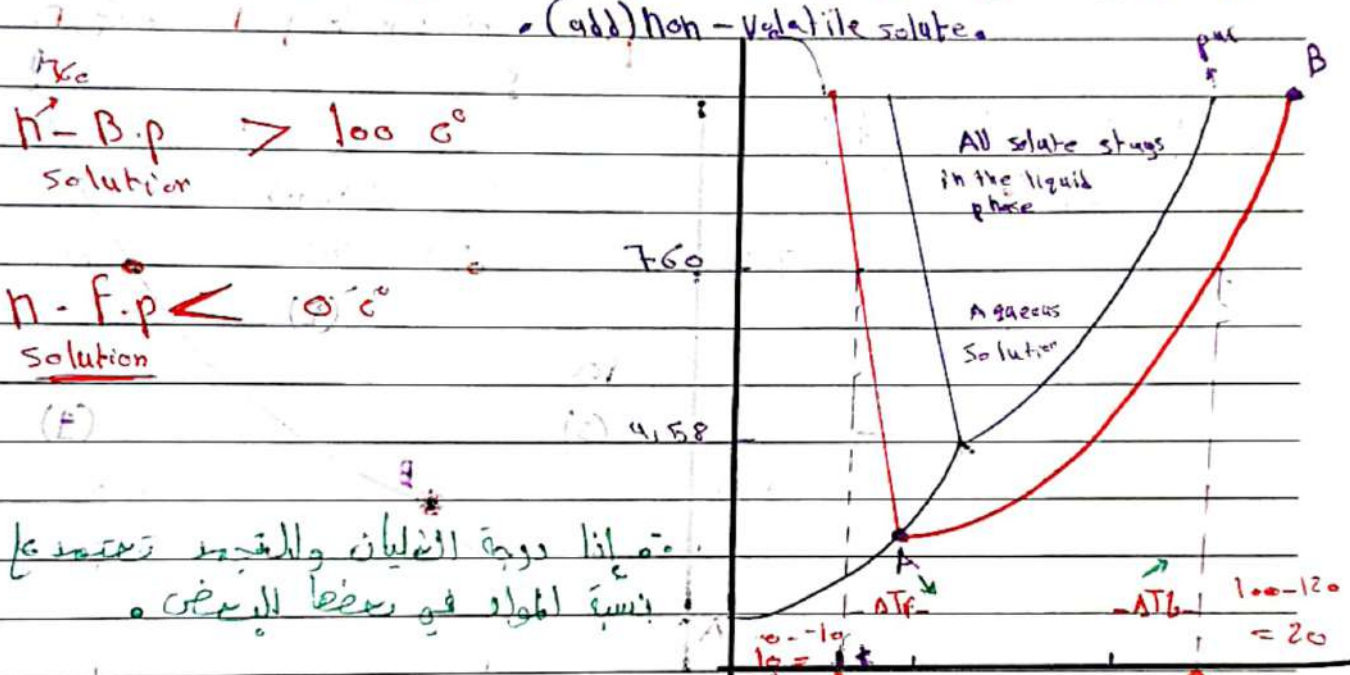 • (add) non-volatile solute.
n - B.p > 100 c°
solution
n - F.p < 0 c°
solution
(E)
إذا درجة الغليان والتجمد تعتمد ع
نسبة المواد في بعضها البعض .
B
All solute stays
in the liquid
phase
760
Aqueous
Solution
4,58
A
ΔTf
ΔTb
100-120
= 20
0--10
10 =